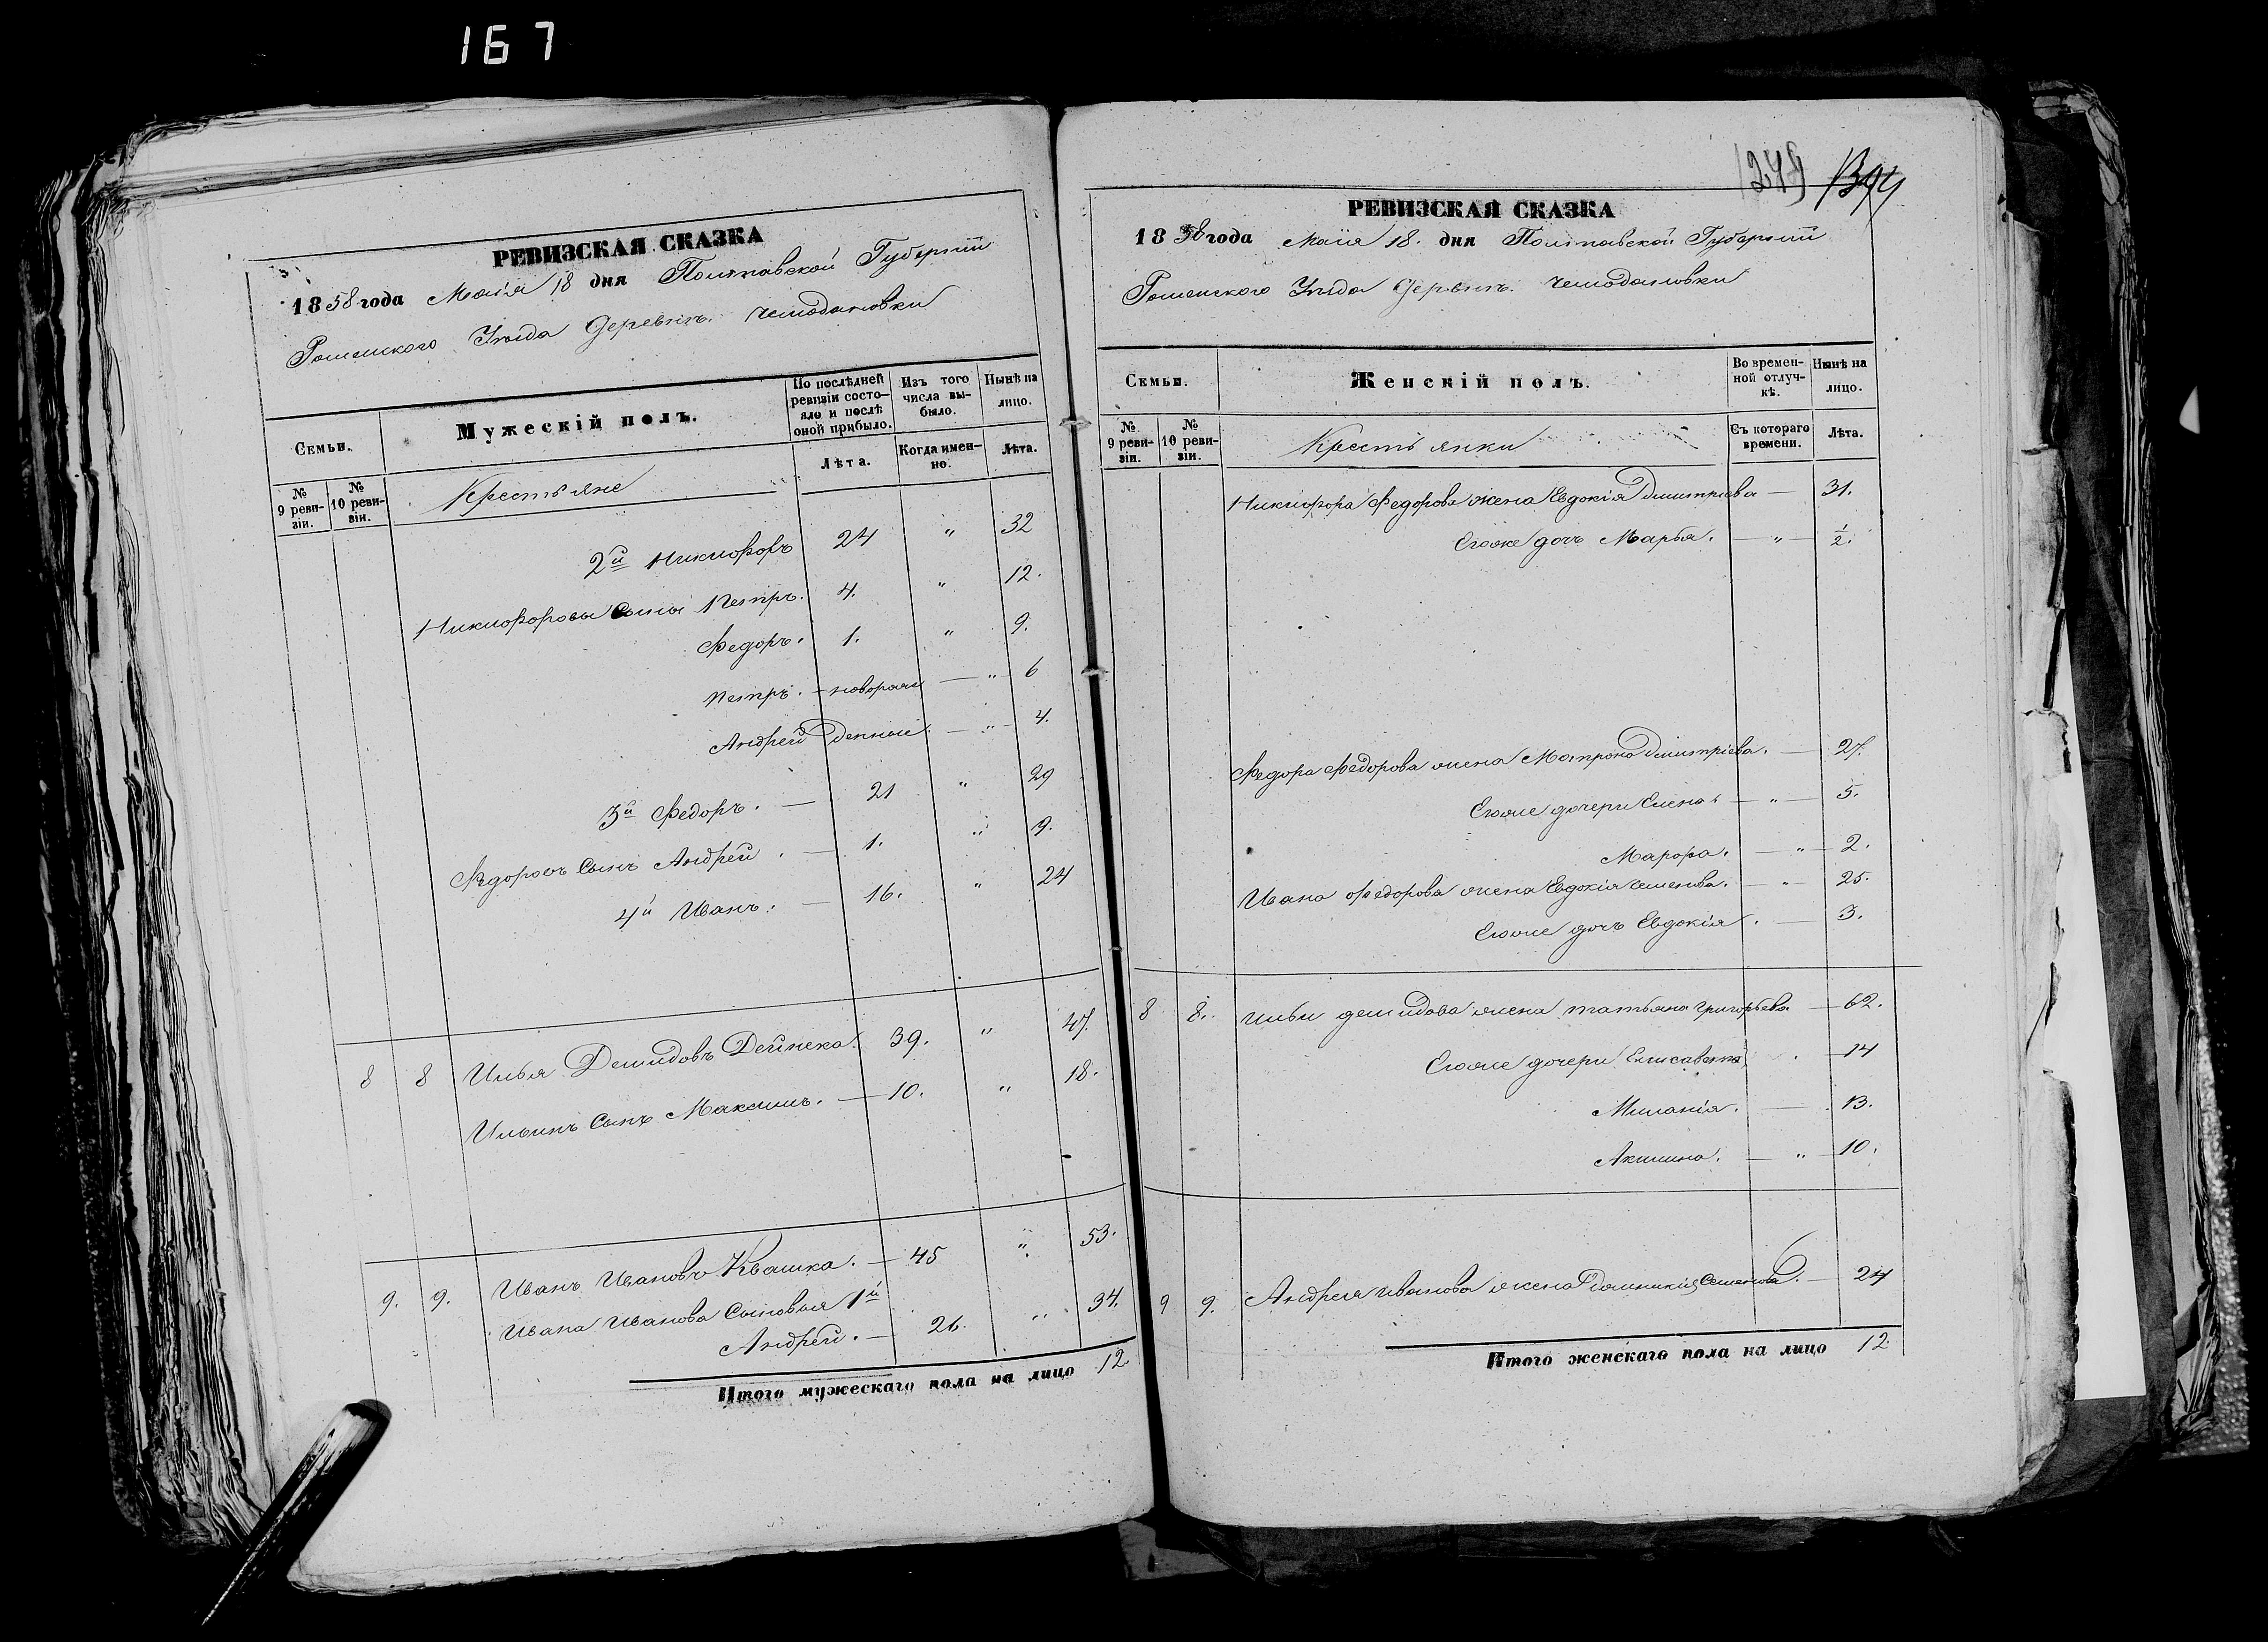 167
РЕВИЗСКАЯ СКАЗКА
1858 года Маія 18 дня Полтавской Губерніи
Роменского Уѣзда Деревнѣ Чемодановки
Семьи.
Мужескій полъ.
По послѣдней ревизіи состояло и послѣ оной прибыло.
Изъ того числа выбыло.
Нынѣ на лицо.
№ 9 ревизіи.
№ 10 ревизіи.
Крестьяне
Лѣта.
Когда именно.
Лѣта.
2й Никифоръ 24 " 32
Никифоровы Сыны Петръ. 4. " 12.
Федоръ. 1. " 9.
Петръ. — новорож — " — 6
Андрей денныи. — " — 4.
3й Федоръ. — 21 " 29
Федоровъ Сынъ Андрей. — 1. " 9.
4й Иванъ. — 16. " 24
8 8 Илья Демидовъ Дейнека. 39. " 47.
Ильинъ Сынъ Максимъ. — 10. " 18.
9. 9. Иванъ Ивановъ Квашка. — 45 " 53.
Ивана Иванова Сыновья 1й
Андрей. — 26. " 34.
Итого мужескаго пола на лицо 12
1244 1344
РЕВИЗСКАЯ СКАЗКА
1858 года Маія 18. дня Полтавской Губерніи
Роменского Уѣзда Деревнѣ. Чемодановки
Семьи.
Женскій полъ.
Во временной отлучкѣ.
Нынѣ на лицо.
№ 9 ревизіи.
№ 10 ревизіи.
Крестьянки
Съ котораго времени.
Лѣта.
Никифора Федорова жена Евдокія Дмитріева — 31.
Егоже дочь Марья. — " — 1/2.
Федора Федорова жена Матрона Дмитріева. — 27.
Егоже дочери Елена. — " — 5.
Марфа. — " — 2.
Ивана Федорова жена Евдокія Семенова. — " — 25.
Егоже дочь Евдокія. — 3.
8 8. Ильи Демидова жена Татьяна Григорьева — 62.
Егоже дочери Елисавета. — 14
Миланія. — 13.
Акилина. — " — 10.
9 9. Андрея Иванова жена Домникія Семенова. — 24
Итого женскаго пола на лицо 12